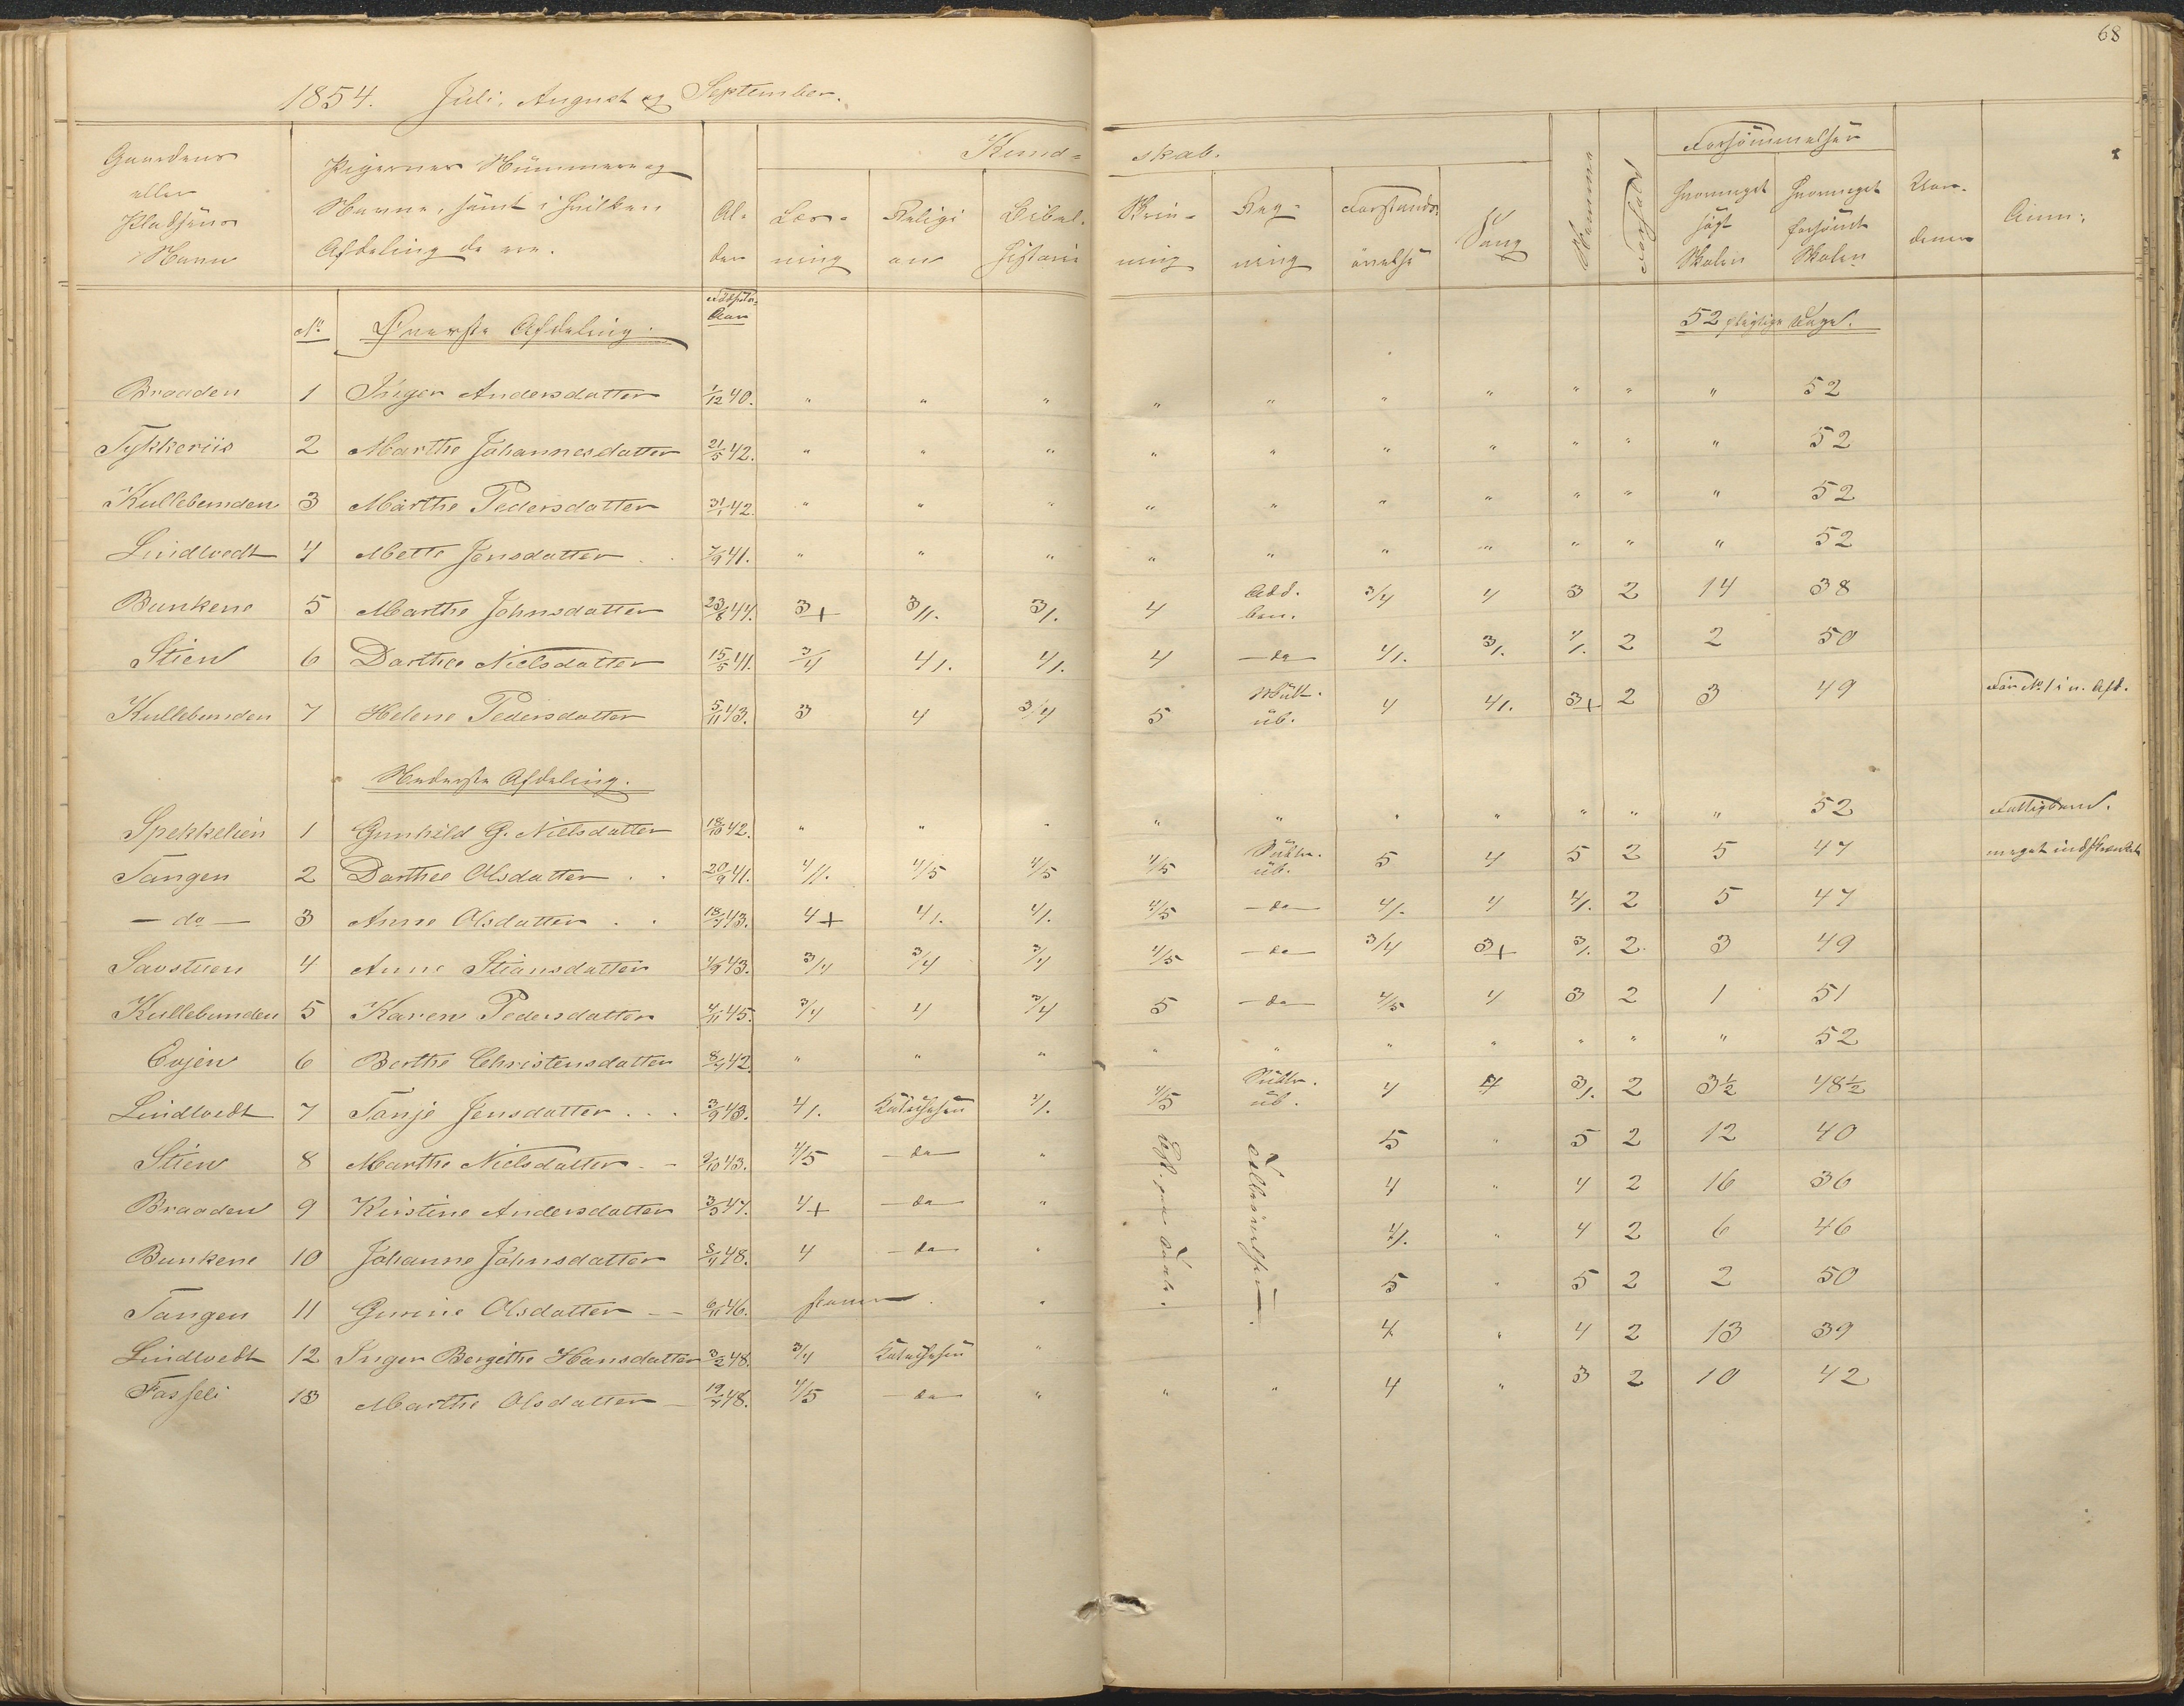 68
1854. Juli, August og September.
Gaardens eller Pladsens Navn | Pigernes Nummere og Navne, samt i hvilken Afdeling de ere. | Al- der | Kund- skab. | Forsømmelser
Læs- ning | Religi on | Bibel- historie | Skriv- ning | Reg- ning | Forstands- øvelse | Sang | Nemme | Forhold | hvormeget søgt Skolen | hvormeget forsømt Skolen | Anm:
No | Øverste Afdeling. | Fødsels- Aar | 52 pligtige Dage.
Braaden 1 Inger Andersdatter 1/12 40. " " " " " " " " " " 52
Tykkeriis 2 Marthe Johannesdatter 21/5 42. " " " " " " " " " " 52
Kullebunden 3 Marthe Pedersdatter 31/1 42. " " " " " " " " " " 52
Lindtvedt 4 Mette Jensdatter 7/9 41. " " " " " " " " " " 52
Bunkene 5 Marthe Johnsdatter 23/6 44. 3+ 3/1. 3/. 4 Add. ben. 3/4 4 3 2 14 38
Stien 6 Dorthee Nielsdatter 15/5 41. 3/4 4/. 4/. 4 — do — 4/. 3/. 4/. 2 2 50
Kullebunden 7 Helene Pedersdatter 5/11 43. 3 4 3/4 5 Mult. üb. 4 4/. 3+ 2 3 49 Før No. 1 i n. Afd.
Nederste Afdeling.
Spekkelien 1 Gunhild G. Nielsdatter 18/10 42. " " " " " " " " " " 52 Fattigbarn.
Tangen 2 Dorthee Olsdatter 20/9 41. 4//. 4/5 4/5 4/5 üb. 5 4 5 2 5 47 meget indskrænket
— do — 3 Anne Olsdatter 18/7 43. 4+ 4/. 4/. 4/5 — do — 4/. 4 4/. 2 5 47
Savstuen 4 Anne Stiansdatter 4/9 43. 3/4 3/4 3/4 4/5 — do — 3/4 3+ 3/. 2 3 49
Kullebunden 5 Karen Pedersdatter 4/11 45. 3/4 4 3/4 5 — do — 4/5 4 3 2 1 51
Evjen 6 Berthe Christensdatter 8/4 42. " " " " " " " " " " 52
Lindtvedt 7 Tanje Jensdatter 3/9 43. 4/. Katechesen 4/. 4/5 üb. 4 4 3/. 2 3½ 48½
Stien 8 Marthe Nielsdatter 2/10 43. 4/5 — do — " 5 " 5 2 12 40
Braaden 9 Kirstine Andersdatter 3/5 47. 4+ — do — " 4 " 4 2 16 36
Bunkene 10 Johanne Johnsdatter 8/4 48. 4 — do — " 4/. " 4 2 6 46
Tangen 11 Gurine Olsdatter 6/11 46. " 5 " 5 2 2 50
Lindtvedt 12 Inger Bergithe Hansdatter 3/2 48. 3/4 Katechesen " 4 " 4 2 13 39
Fasseli 13 Marthe Olsdatter 19/7 48. 4/5 — do — " " " 4 " 3 2 10 42
Talkundskaben